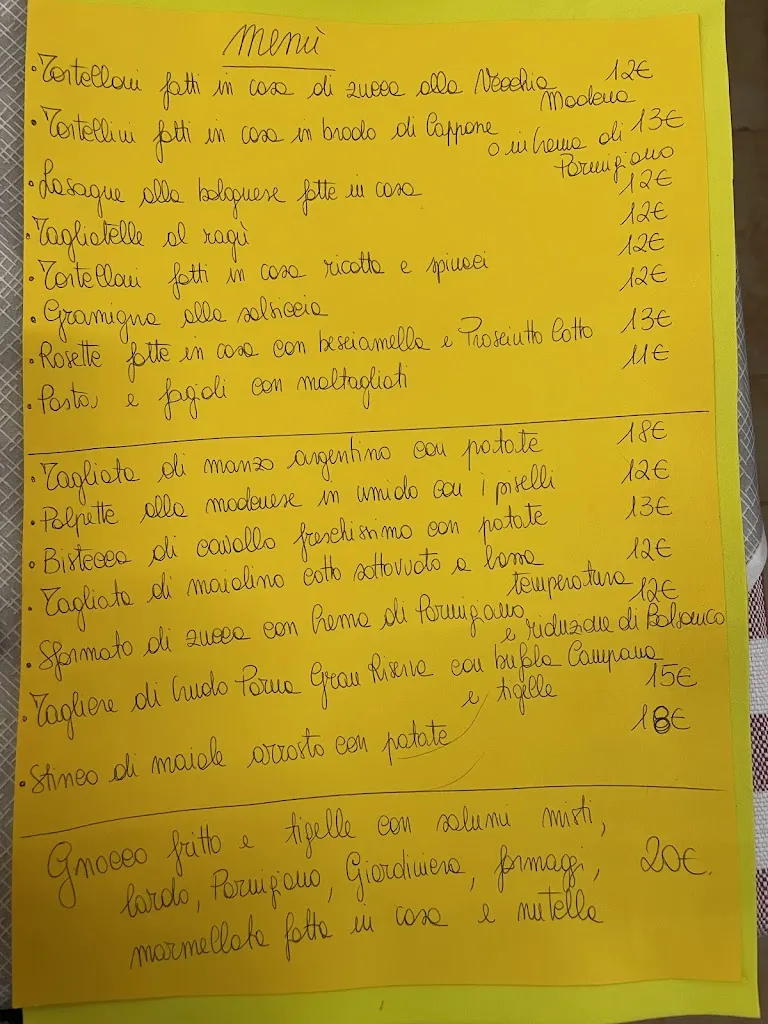 Menù
• Tortelloni fatti in casa di zucca alla Vecchia Modena 12€
• Tortellini fatti in casa in brodo di Cappone o in Crema di Parmigiano 13€
• Lasagne alla bolognese fatte in casa 12€
• Tagliatelle al ragù 12€
• Tortelloni fatti in casa ricotta e spinaci 12€
• Gramigna alla salsiccia 12€
• Rosette fatte in casa con besciamella e Prosciutto Cotto 13€
• Pasta e fagioli con maltagliati 11€
• Tagliata di manzo argentino con patate 18€
• Polpette alla modenese in umido con i piselli 12€
• Bistecca di cavallo freschissimo con patate 13€
• Tagliata di maialino cotto sottovuoto a bassa temperatura 12€
• Sformato di zucca con Crema di Parmigiano e riduzione di Balsamico 12€
• Tagliere di Crudo Parma Gran Riserva con bufala Campana e tigelle 15€
• Stinco di maiale arrosto con patate 18€
Gnocco fritto e tigelle con salumi misti,
lardo, Parmigiano, Giardiniera, formaggi, 20€.
marmellata fatta in casa e nutella